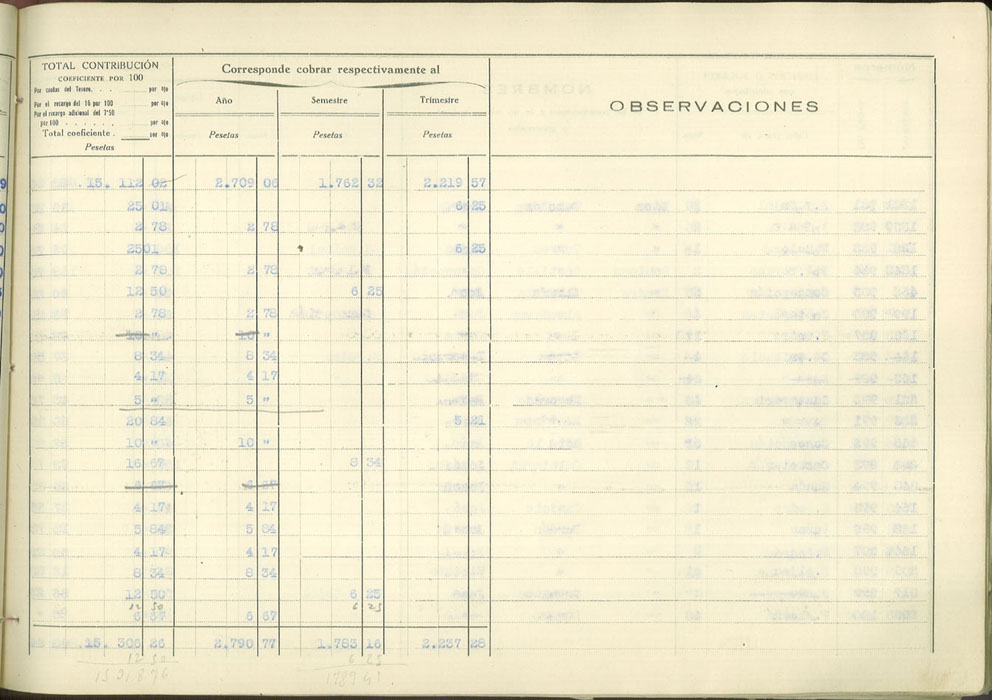 TOTAL CONTRIBUCIÓN
COEFICIENTE POR 100
Por cuotas del Tesoro. . . . por 100
Por el recargo del 16 por 100 por 100
Por el recargo adicional del 7'50
por 100 . . . . . . por 100
Total coeficiente . por 100
Pesetas
Corresponde cobrar respectivamente al
Año Semestre Trimestre
Pesetas Pesetas Pesetas
OBSERVACIONES
15. 112 02 2.709 06 1.762 32 2.219 57
25 01 6 25
2 78 2 78
25 01 6 25
2 78 2 78
12 50 6 25
2 78 2 78
10 " 10 "
8 34 8 34
4 17 4 17
5 " 5 "
20 84 5 21
10 " 10 "
16 67 8 34
6 67 6 67
4 17 4 17
5 84 5 84
4 17 4 17
8 34 8 34
12 50 6 25
12 50 6 25
6 67 6 67
15. 306 26 2.790 77 1.783 16 2.237 28
12 50 6 25